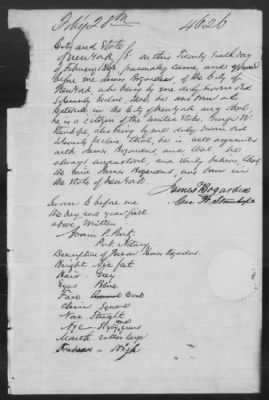 Feby 28th 4626
City and State
of New York } On this Twenty Eighth day
of February 1861, personally came and appeared
before me James Bogardus, of the City of
New York who being by me duly sworn did
depose and declare that he was born
in the City of New York and that
he is a citizen of the United States. George W.
also being by me duly sworn did
declare that, he is well acquainted
with James Bogardus, and that, he
and verily believes that
the said James Bogardus, was born in
the State of New York.
James Bogardus
Geo. W.
Sworn to before me
the day and year first
above written
Pub. Notary
Description of Person James Bogardus.
Height feet
Hair - Grey
Eyes Blue
Face Oval
Chin Square
Nose Straight
Age - Sixty one years
Mouth rather large
Forehead - High